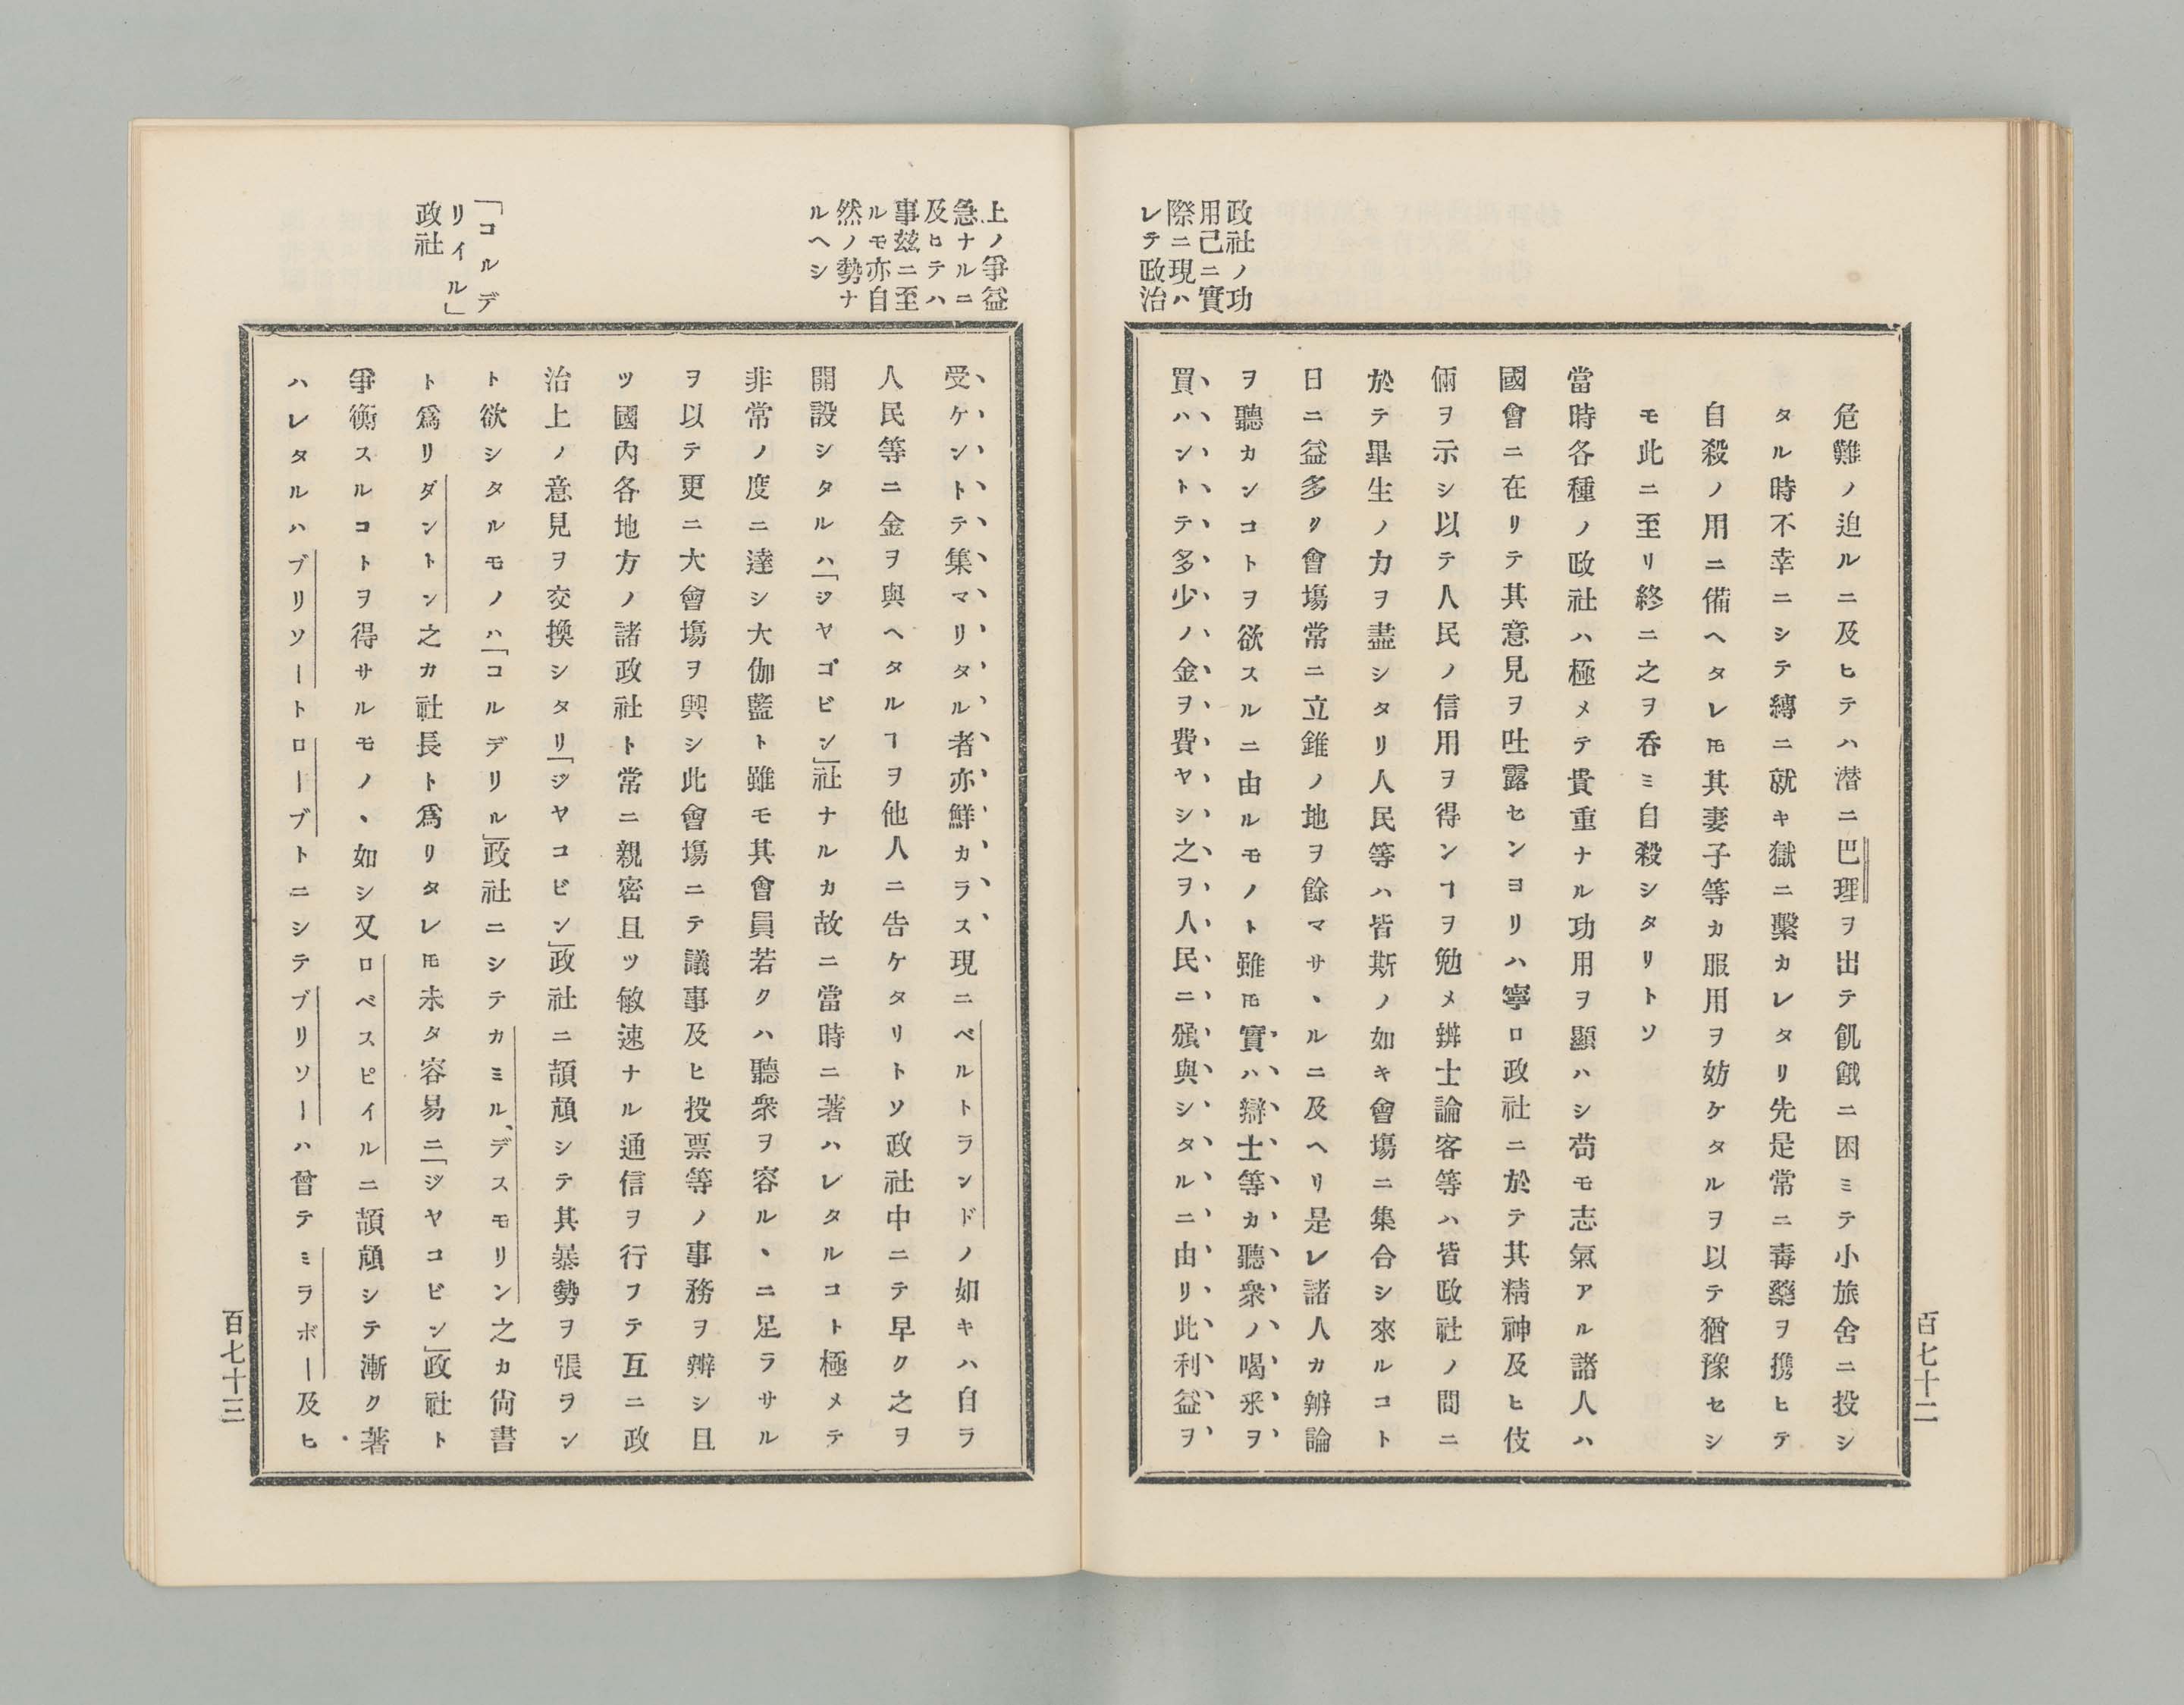 政社ノ功
用己ニ實
際ニ現ハ
レテ政治
危難ノ迫ルニ及ヒテハ潜ニ巴理ヲ出テ飢餓ニ困ミテ小旅舍ニ投シ
タル時不幸ニシテ縛ニ就キ獄ニ繫カレタリ先是常ニ毒藥ヲ携ヒテ
自殺ノ用ニ備ヘタレ𪜈其妻子等カ服用ヲ妨ケタルヲ以テ猶豫セシ
モ此ニ至リ終ニ之ヲ呑ミ自殺シタリトソ
當時各種ノ政社ハ極メテ貴重ナル功用ヲ顯ハシ苟モ志氣アル諸人ハ
國會ニ在リテ其意見ヲ吐露センヨリハ寧ロ政社ニ於テ其精神及ヒ伎
倆ヲ示シ以テ人民ノ信用ヲ得ンヿヲ勉メ辨士論客等ハ皆政社ノ間ニ
於テ畢生ノ力ヲ盡シタリ人民等ハ皆斯ノ如キ會塲ニ集合シ來ルコト
日ニ益多ク會塲常ニ立錐ノ地ヲ餘マサヽルニ及ヘリ是レ諸人カ辨論
ヲ聽カンコトヲ欲スルニ由ルモノト雖𪜈實ハ辯士等カ聽衆ノ喝釆ヲ
買ハントテ多少ノ金ヲ費ヤシ之ヲ人民ニ頒與シタルニ由リ此利益ヲ
百七十二
上ノ爭益
急ナルニ
及ヒテハ
事玆ニ至
ルモ亦自
然ノ勢ナ
ルヘシ
「コルデ
リイル」
政社
受ケントテ集マリタル者亦鮮カラス現ニベルトランドノ如キハ自ラ
人民等ニ金ヲ與ヘタルヿヲ他人ニ告ケタリトソ政社中ニテ早ク之ヲ
開設シタルハ「ジヤゴビン」社ナルカ故ニ當時ニ著ハレタルコト極メテ
非常ノ度ニ達シ大伽藍ト雖モ其會員若クハ聽衆ヲ容ルヽニ足ラサル
ヲ以テ更ニ大會塲ヲ興シ此會塲ニテ議事及ヒ投票等ノ事務ヲ辨シ且
ツ國內各地方ノ諸政社ト常ニ親密且ツ敏速ナル通信ヲ行フテ互ニ政
治上ノ意見ヲ交換シタリ「ジヤコビン」政社ニ頡頏シテ其暴勢ヲ張ヲン
ト欲シタルモノハ「コルデリル」政社ニシテカミル、デスモリン之カ尙書
ト爲リダントン之カ社長ト爲リタレ𪜈未タ容易ニ「ジヤコビン」政社ト
爭衡スルコトヲ得サルモノヽ如シ又ロベスピイルニ頡頏シテ漸ク著
ハレタルハブリソートローブトニシテブリソーハ曾テミラボー及ヒ
百七十三